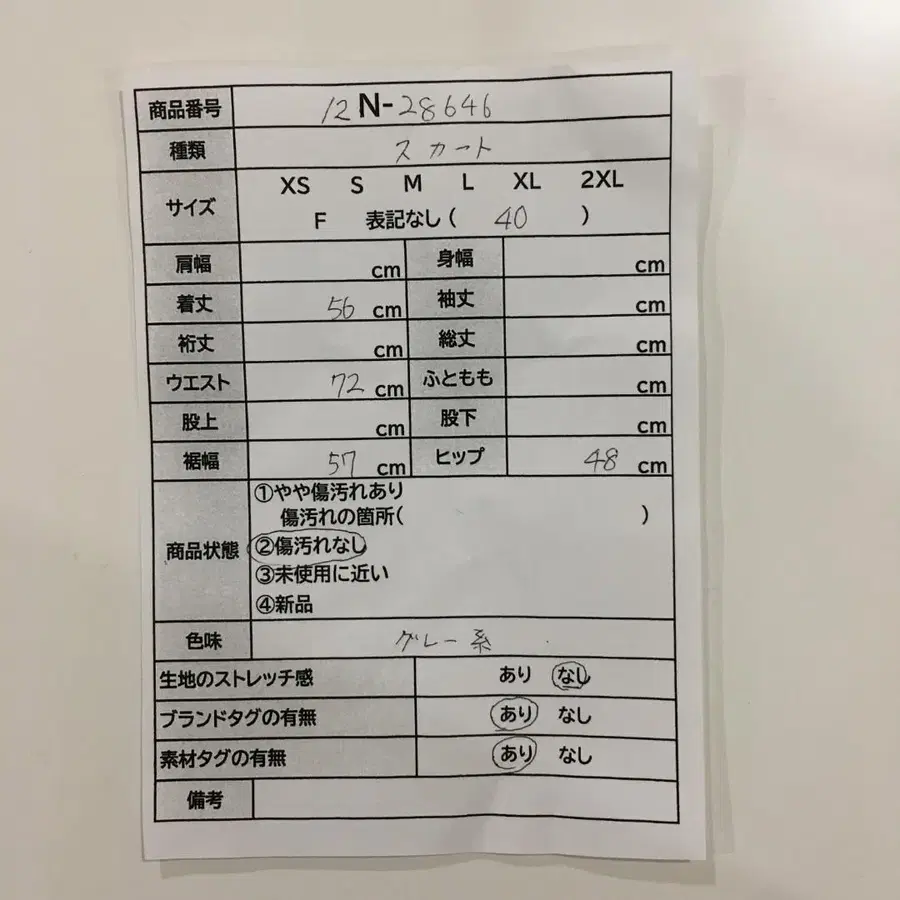 商品番号 12 N-28646
種類 スカート
サイズ XS S M L XL 2XL
F 表記なし( 40 )
肩幅 cm 身幅 cm
着丈 56 cm 袖丈 cm
裄丈 cm 総丈 cm
ウエスト 72 cm ふともも cm
股上 cm 股下 cm
裾幅 57 cm ヒップ 48 cm
商品状態 ①やや傷汚れあり
傷汚れの箇所( )
②傷汚れなし
③未使用に近い
④新品
色味 グレー系
生地のストレッチ感 あり なし
ブランドタグの有無 あり なし
素材タグの有無 あり なし
備考